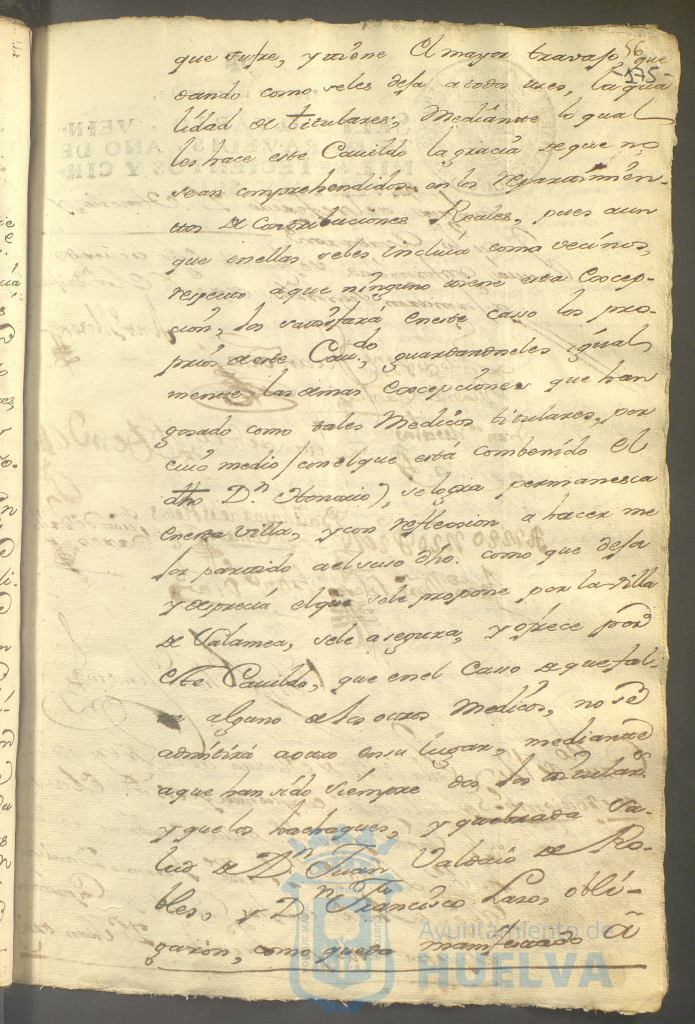 56
175
que sufre, y tiene el mayor travajo, que
dando como seles desa a todos tres, la qua
lidad de titulares; Mediante lo qual
les hace este Cavildo la gracia de que no
sean comprehendidos en los repartimien-
tos de Contribuciones Reales, pues aun
que en ellas se les incluia como vecinos,
respecto a que ninguno tiene esta Excep-
cion, los satisfará en este Caso los pro-
pios de este Cavdo, guardandoles igual
mente las demas Excepciones que han
gosado como tales Medicos titulares, por
cuio medio (con el que está combenido el
dho Dn Honorio), se logra permanesca
en esta villa, y con reflecsion a hacer me
jor partido a el suso dho. como que desa
y desprecia el que se le propone por la villa
de Salamea, se le asegura, y ofrece por
este Cavildo, que en el Caso de que fal
te alguno de los otros Medicos, no se
admitirá a otro en su lugar, mediante
a que han sido siempre dos los titulars
y que los hachaques, y quebrada Sa-
lud de Dn Juan Valdaio de Ro-
bles, y Dn Francisco Laso, obli-
garon, como queda manifestado a
Ayuntamiento de
HUELVA